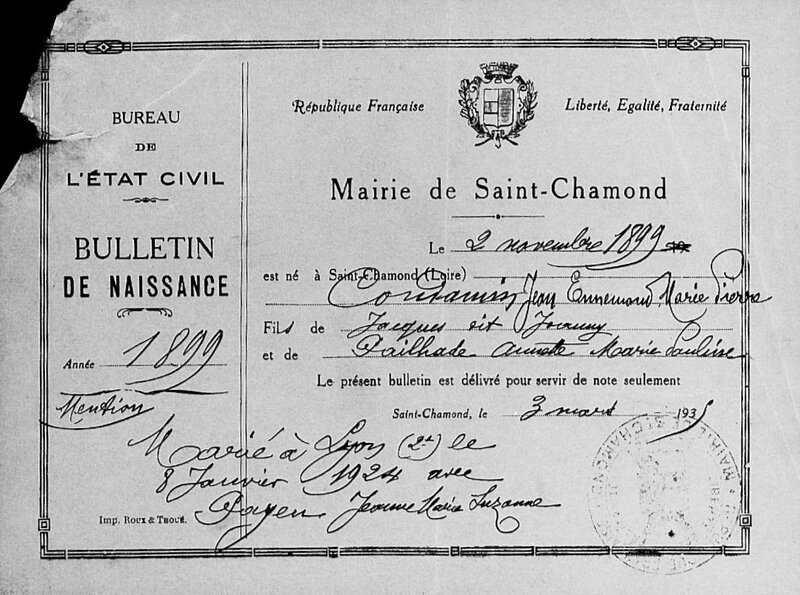 BUREAU
DE
L'ÉTAT CIVIL
BULLETIN
DE NAISSANCE
Année 1899
Mention
République Française
Liberté, Egalité, Fraternité
Mairie de Saint-Chamond
Le 2 novembre 1899
est né à Saint-Chamond (Loire)
Condamin Jean Ennemond Marie Pierre
Fils de Jacques dit Joanny
et de Pailhade Annette Marie Pauline
Le présent bulletin est délivré pour servir de note seulement
Saint-Chamond, le 3 mars 1935
Marié à Lyon (2e) le
8 Janvier 1924 avec
Payen Jeanne Marie Suzanne
Imp. Roux & Thoué.
MAIRIE DE ST CHAMOND